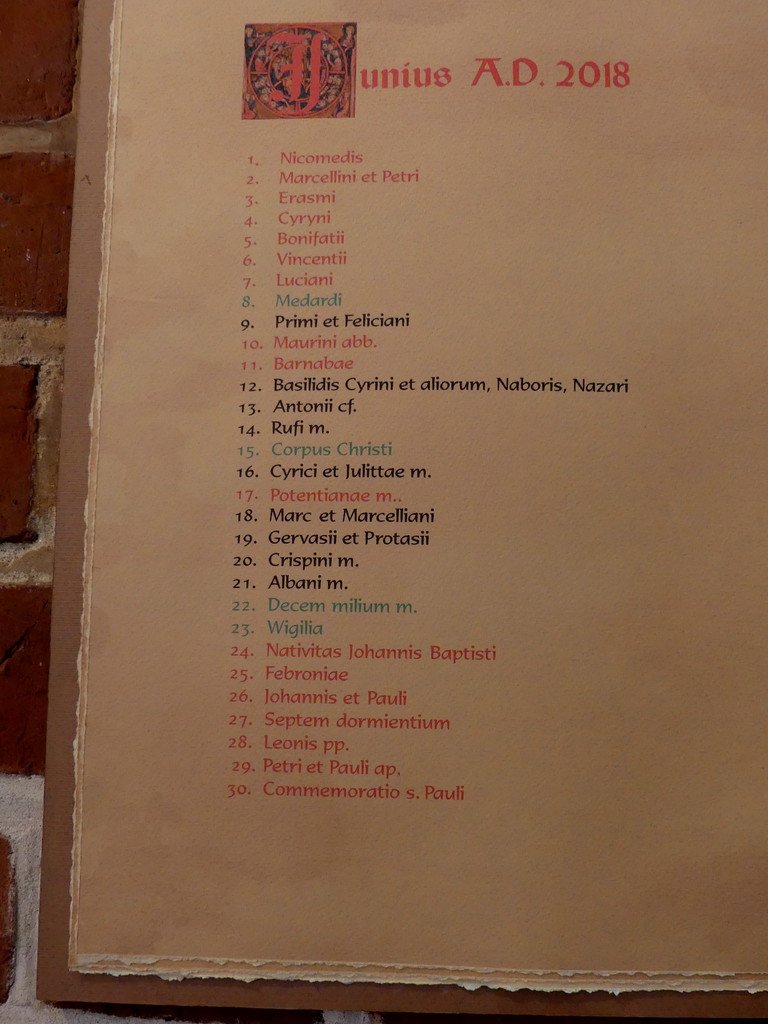 Junius A.D. 2018
1. Nicomedis
2. Marcellini et Petri
3. Erasmi
4. Cyryni
5. Bonifatii
6. Vincentii
7. Luciani
8. Medardi
9. Primi et Feliciani
10. Maurini abb.
11. Barnabae
12. Basilidis Cyrini et aliorum, Naboris, Nazari
13. Antonii cf.
14. Rufi m.
15. Corpus Christi
16. Cyrici et Julittae m.
17. Potentianae m..
18. Marc et Marcelliani
19. Gervasii et Protasii
20. Crispini m.
21. Albani m.
22. Decem milium m.
23. Wigilia
24. Nativitas Johannis Baptisti
25. Febroniae
26. Johannis et Pauli
27. Septem dormientium
28. Leonis pp.
29. Petri et Pauli ap.
30. Commemoratio s. Pauli